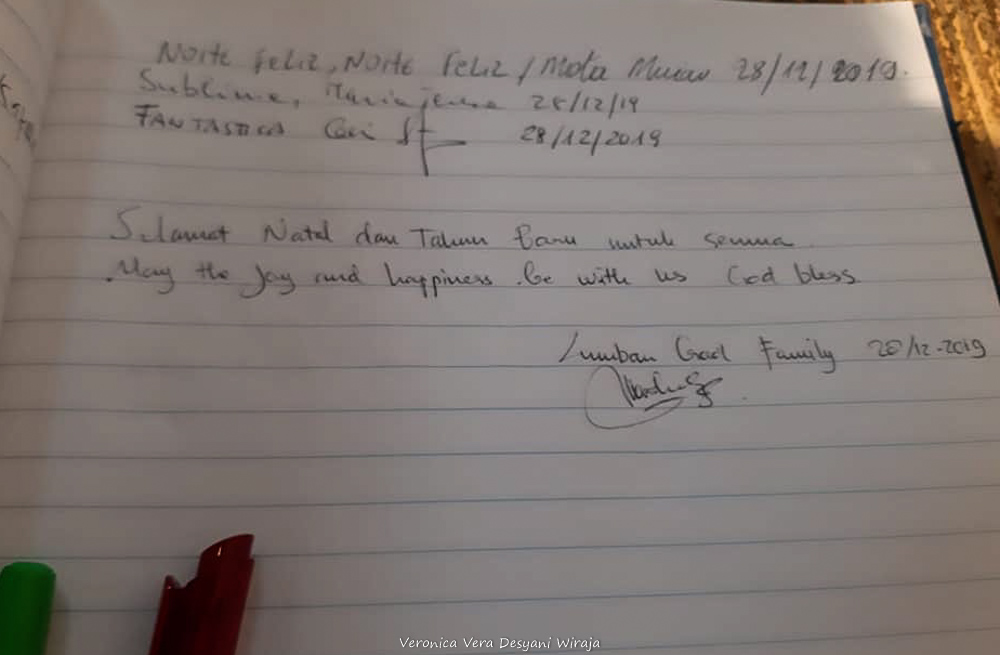 Norte Feliz, Norte Feliz / Mota 28/12/2019.
Sublime, 28/12/19
FANTASTICA 28/12/2019
Selamat Natal dan Tahun Baru untuk semua.
May the Joy and happiness be with us God bless
Lumban Gaol Family 28/12-2019
Veronica Vera Desyani Wiraja